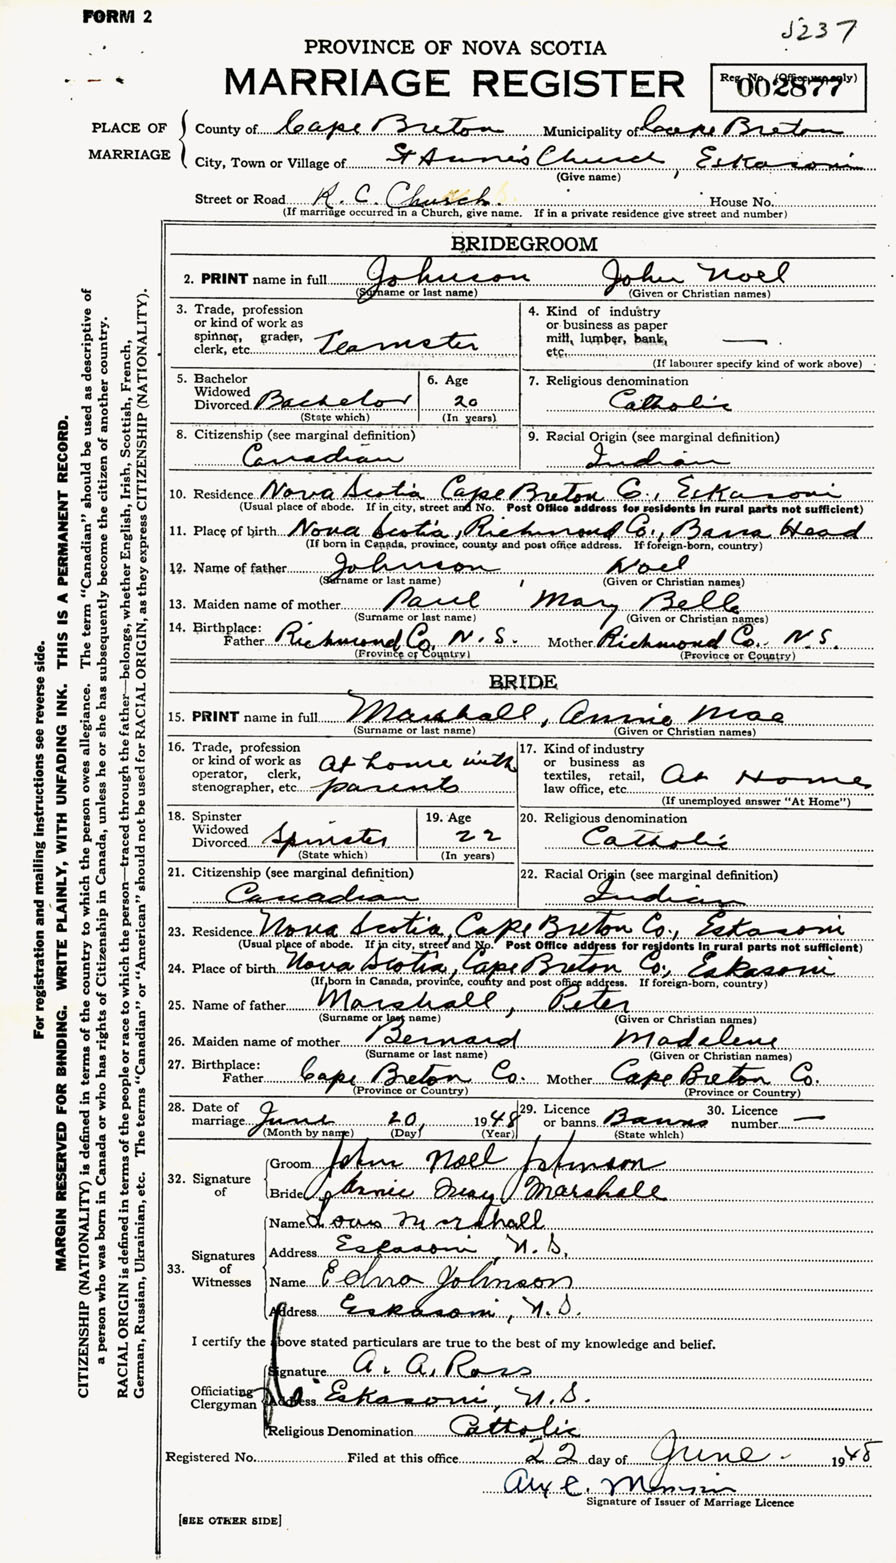 FORM 2
5237
PROVINCE OF NOVA SCOTIA
MARRIAGE REGISTER
Reg. No. (Office use only)
002877
PLACE OF MARRIAGE
County of Cape Breton Municipality of Cape Breton
City, Town or Village of St Anne's Church, Eskasoni
(Give name)
Street or Road R. C. Church. House No.
(If marriage occurred in a Church, give name. If in a private residence give street and number)
BRIDEGROOM
2. PRINT name in full Johnson John Noel
(Surname or last name) (Given or Christian names)
3. Trade, profession or kind of work as spinner, grader, clerk, etc. Teamster
4. Kind of industry or business as paper mill, lumber, bank, etc. —
(If labourer specify kind of work above)
5. Bachelor Widowed Divorced Bachelor
(State which)
6. Age 20
(In years)
7. Religious denomination
Catholic
8. Citizenship (see marginal definition)
Canadian
9. Racial Origin (see marginal definition)
Indian
10. Residence Nova Scotia Cape Breton Co., Eskasoni
(Usual place of abode. If in city, street and No. Post Office address for residents in rural parts not sufficient)
11. Place of birth Nova Scotia, Richmond Co., Barra Head
(If born in Canada, province, county and post office address. If foreign-born, country)
12. Name of father Johnson, Noel
(Surname or last name) (Given or Christian names)
13. Maiden name of mother Paul Mary Belle
(Surname or last name) (Given or Christian names)
14. Birthplace:
Father Richmond Co., N.S. Mother Richmond Co., N.S.
(Province or Country) (Province or Country)
BRIDE
15. PRINT name in full Marshall, Annie Mae
(Surname or last name) (Given or Christian names)
16. Trade, profession or kind of work as operator, clerk, stenographer, etc. At home with parents
17. Kind of industry or business as textiles, retail, law office, etc. At Home
(If unemployed answer "At Home")
18. Spinster Widowed Divorced Spinster
(State which)
19. Age 22
(In years)
20. Religious denomination
Catholic
21. Citizenship (see marginal definition)
Canadian
22. Racial Origin (see marginal definition)
Indian
23. Residence Nova Scotia, Cape Breton Co., Eskasoni
(Usual place of abode. If in city, street and No. Post Office address for residents in rural parts not sufficient)
24. Place of birth Nova Scotia, Cape Breton Co., Eskasoni
(If born in Canada, province, county and post office address. If foreign-born, country)
25. Name of father Marshall, Peter
(Surname or last name) (Given or Christian names)
26. Maiden name of mother Bernard Madalene
(Surname or last name) (Given or Christian names)
27. Birthplace:
Father Cape Breton Co. Mother Cape Breton Co.
(Province or Country) (Province or Country)
28. Date of marriage June 20, 1948
(Month by name) (Day) (Year)
29. Licence or banns Banns
(State which)
30. Licence number —
32. Signature of
Groom John Noel Johnson
Bride Annie May Marshall
33. Signatures of Witnesses
Name Louis Marshall
Address Eskasoni, N.S.
Name Edna Johnson
Address Eskasoni, N.S.
I certify the above stated particulars are true to the best of my knowledge and belief.
Officiating Clergyman
Signature A. A. Ross
Address Eskasoni, N.S.
Religious Denomination Catholic
Registered No. Filed at this office 22 day of June 1948
Signature of Issuer of Marriage Licence
[SEE OTHER SIDE]
For registration and mailing instructions see reverse side.
MARGIN RESERVED FOR BINDING. WRITE PLAINLY, WITH UNFADING INK. THIS IS A PERMANENT RECORD.
CITIZENSHIP (NATIONALITY) is defined in terms of the country to which the person owes allegiance. The term "Canadian" should be used as descriptive of
a person who was born in Canada or who has rights of Citizenship in Canada, unless he or she has subsequently become the citizen of another country.
RACIAL ORIGIN is defined in terms of the people or race to which the person—traced through the father—belongs, whether English, Irish, Scottish, French,
German, Russian, Ukrainian, etc. The terms "Canadian" or "American" should not be used for RACIAL ORIGIN, as they express CITIZENSHIP (NATIONALITY).